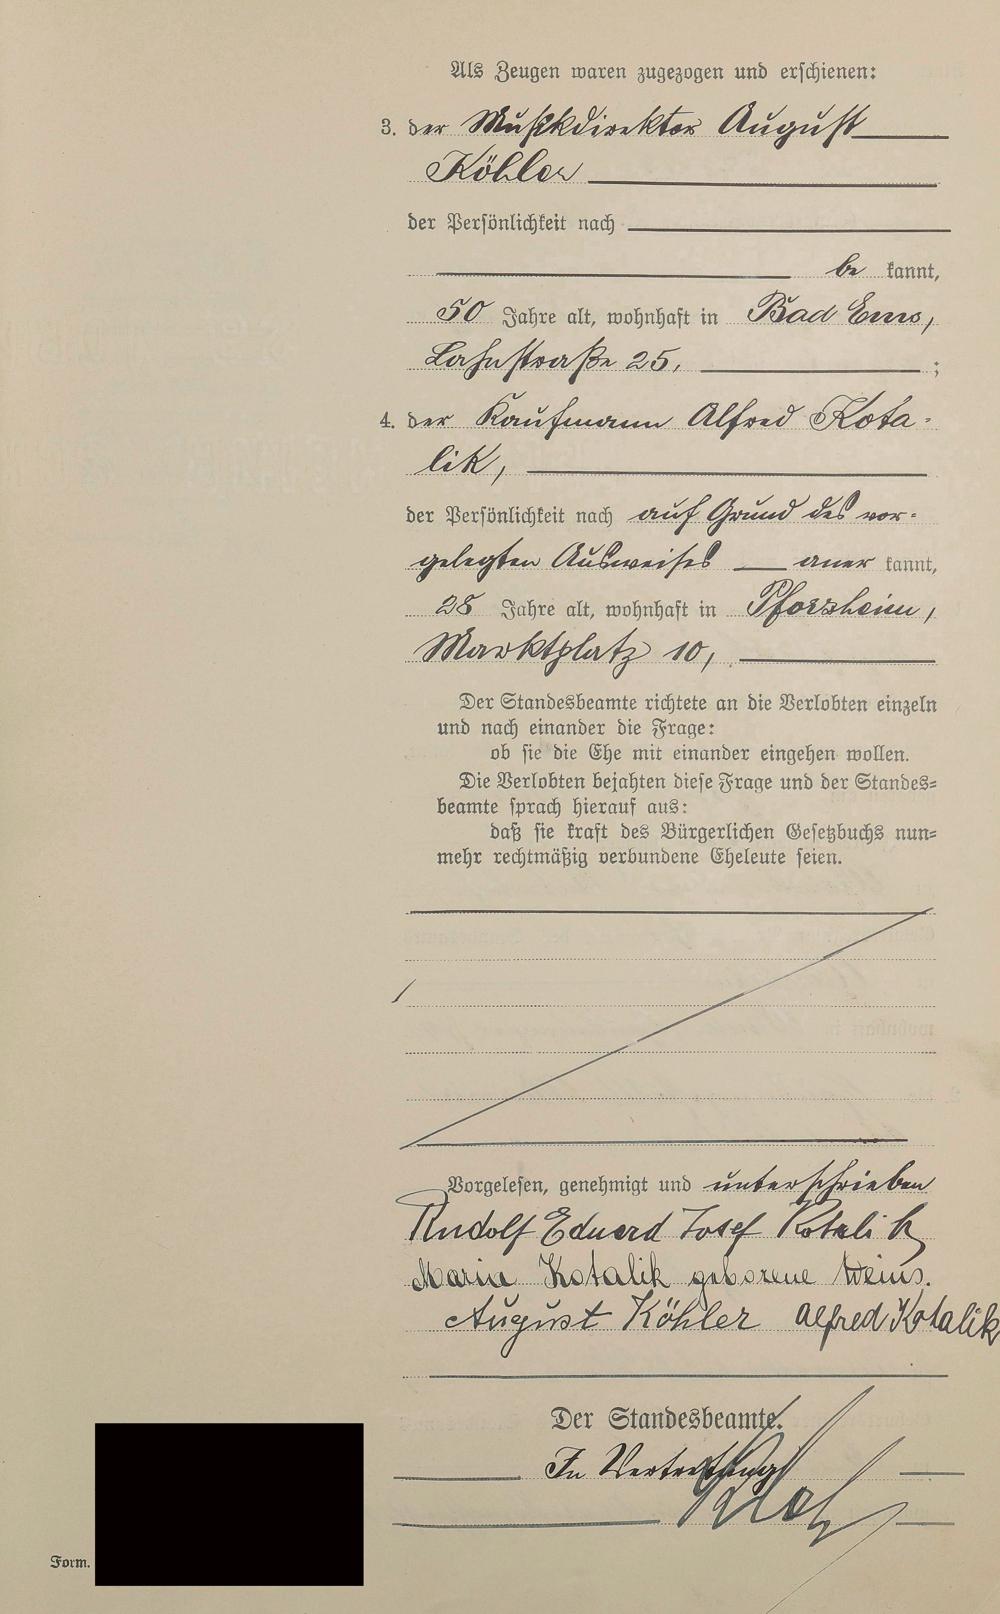 Als Zeugen waren zugezogen und erschienen:
3. der Musikdirektor August
Köhler
der Persönlichkeit nach
be kannt,
50 Jahre alt, wohnhaft in Bad Ems,
Lahnstraße 25. ;
4. der Kaufmann Alfred Kota-
lik,
der Persönlichkeit nach auf Grund des vor-
gelegten Ausweises aner kannt,
28 Jahre alt, wohnhaft in Pforzheim,
Marktplatz 10,
Der Standesbeamte richtete an die Verlobten einzeln
und nach einander die Frage:
ob sie die Ehe mit einander eingehen wollen.
Die Verlobten bejahten diese Frage und der Standes-
beamte sprach hierauf aus:
daß sie kraft des Bürgerlichen Gesetzbuchs nun-
mehr rechtmäßig verbundene Eheleute seien.
Vorgelesen, genehmigt und unterschrieben
Rudolf Eduard Josef Kotalik
Maria Kotalik geborene Weins.
August Köhler Alfred Kotalik
Der Standesbeamte.
In Vertretung
Form.